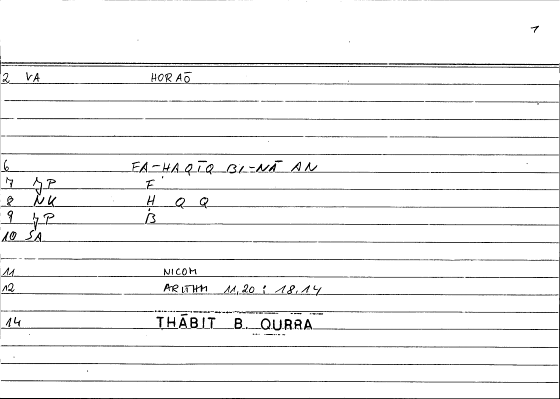 1
2 VA HORAŌ
6 FA-HAQĪQ BI-NĀ AN
7 ȷP F
8 NK Ḣ Q Q
9 ȷP Ḃ
10 SA
11 NICOM
12 ARITHM 11,20 : 18,14
14 THĀBIT B. QURRA